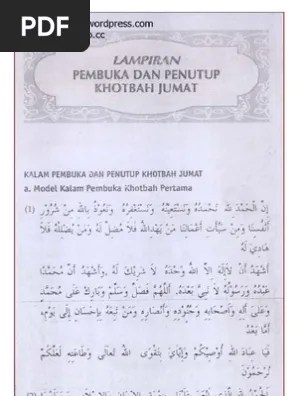 PDF
wordpress.com
.cc
LAMPIRAN
PEMBUKA DAN PENUTUP
KHOTBAH JUMAT
KALAM PEMBUKA DAN PENUTUP KHOTBAH JUMAT
a. Model Kalam Pembuka Khotbah Pertama
(1) إِنَّ الْحَمْدَ لِلَّهِ نَحْمَدُهُ وَنَسْتَعِيْنُهُ وَنَسْتَغْفِرُهُ وَنَعُوْذُ بِاللهِ مِنْ شُرُوْرِ
أَنْفُسِنَا وَمِنْ سَيِّئَاتِ أَعْمَالِنَا مَنْ يَهْدِاللهُ فَلاَ مُضِلَّ لَهُ وَمَنْ يُضْلِلْهُ فَلاَ
هَادِيَ لَهُ
أَشْهَدُ أَنْ لاَإِلَهَ اِلاَّ اللهُ وَحْدَهُ لاَ شَرِيْكَ لَهُ وَأَشْهَدُ أَنَّ مُحَمَّدًا
عَبْدُهُ وَرَسُوْلُهُ لاَ نَبِيَّ بَعْدَهُ. اَللَّهُمَّ فَصَلِّ وَسَلِّمْ وَبَارِكْ عَلَى مُحَمَّدٍ
وَعَلَى آلِهِ وَأَصْحَابِهِ وَجُنُوْدِهِ وَأَنْصَارِهِ وَمَنْ تَبِعَهُ بِإِحْسَانٍ إِلَى يَوْمِ،
أَمَّا بَعْدُ
فَيَا عِبَادَ اللهِ أُوْصِيْكُمْ وَإِيَّايَ بِتَقْوَى اللهِ تَعَالَى وَطَاعَتِهِ لَعَلَّكُمْ
تُرْحَمُوْنَ